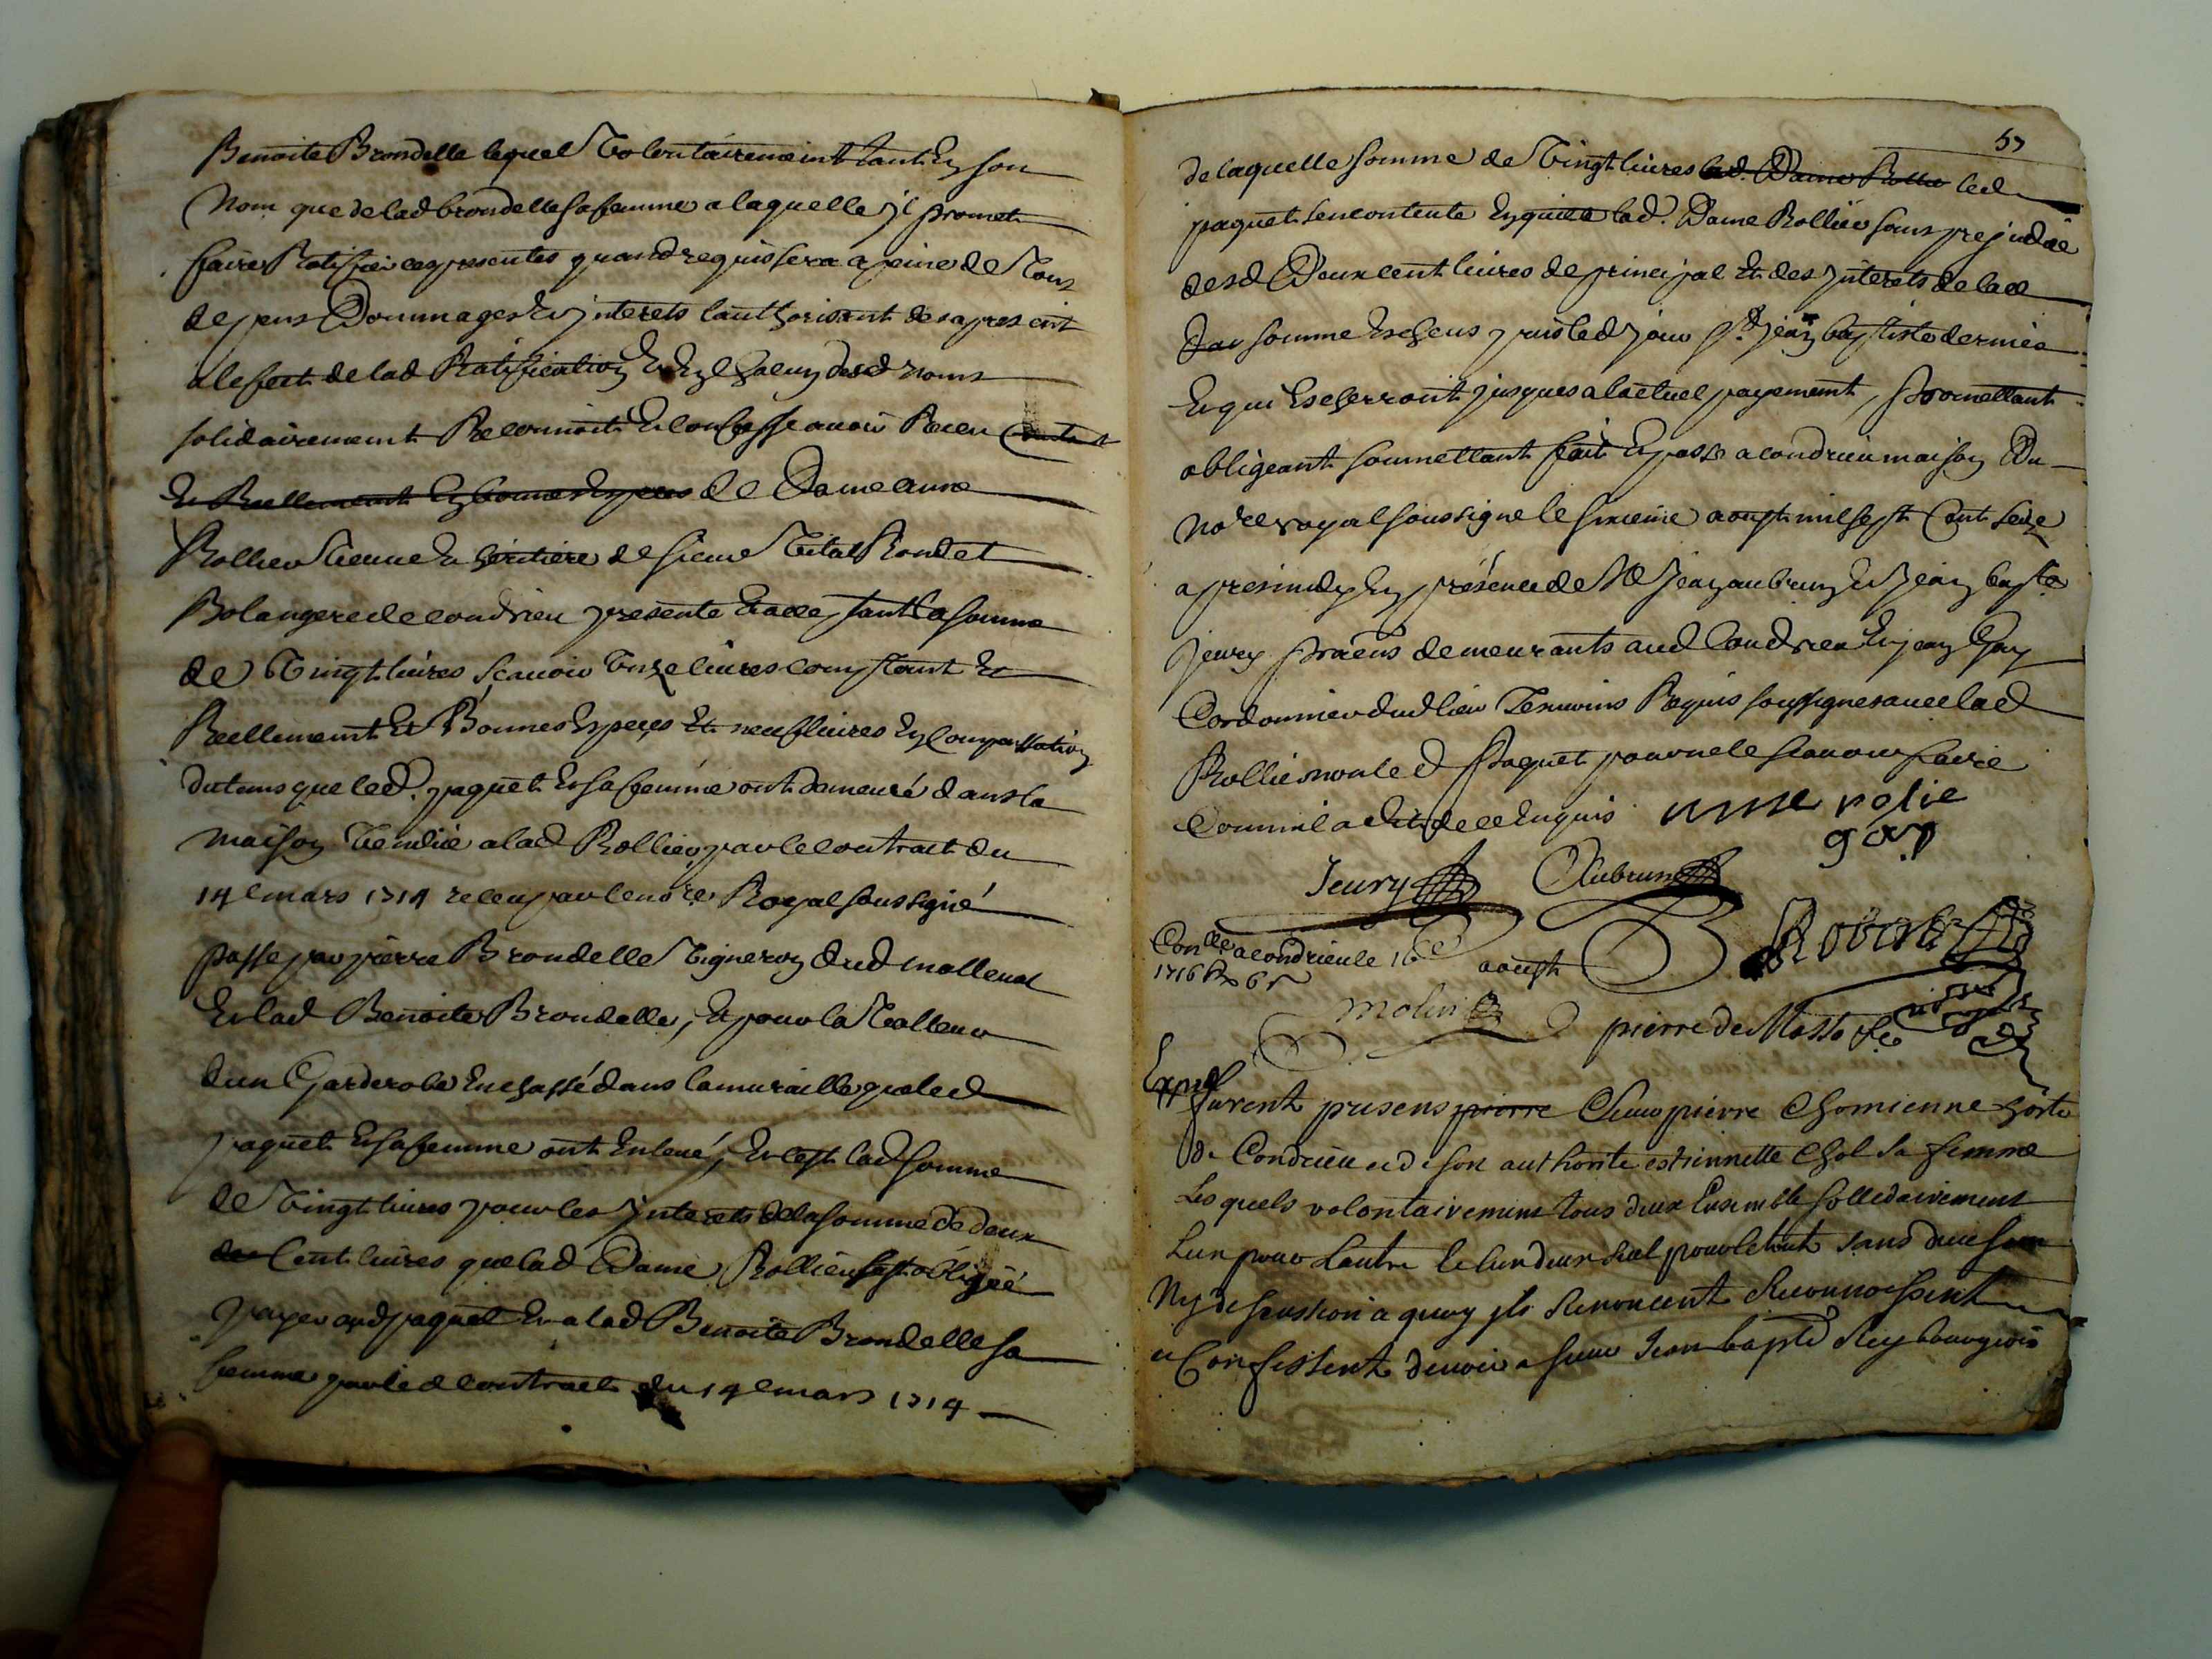 Benoite Brondelle lequel Volontairement tant En son
Nom que de lad brondelle sa femme a laquelle jl promet
faire Ratiffier ces presentes quand requis sera a peine de Tous
depens Dommages Et jnterets lauthorisant des apresent
a leffect de lad Ratiffication Et En Chacun desd noms
solidairement Reconnoit Et Confesse avoir Receu Contant
Et Reellement En bonnes Especes de Dame anne
Rollier Vienne heritière de sieur Vital Rondet
Bolangere de condrieu presente Et acceptant la somme
de Vingt livres sçavoir Unze livres comptant Et
Reellement Et Bonnes Especes Et neuf livres En Compensation
du tems que led. paquet Et sa femme ont demeuré dans la
maison Vendue a lad Rollier par le contract du
14e mars 1714 receu par le nore Royal soussigné
passé par pierre Brondelle Vigneron dud
Et lad Benoite Brondelle, Et pour la Valleur
dun Garderobe Enchassé dans la muraille que led
paquet Et sa femme ont Enlevé, Et cest lad somme
de Vingt livres pour les jnterets de la somme de deux
Cent livres que lad Dame Rollier sest obligée
payer aud paquet Et a lad Benoite Brondelle sa
femme par led contract du 14e mars 1714
57
de laquelle somme de Vingt livres lad. Dame Rollier led
paquet sen contente En quitte lad. Dame Rollier sans prejudice
desd Deux cent livres de principal Et des jnterets de lad
somme Escheus puis led jour St. jean baptiste dernier
Et qui Escherront jusques a lactuel payement, promettant
obligeant soumettant fait Et passé a condrieu maison Du
nore royal soussigne le sixieme aoust mil sept Cent seize
apresmidy En présence de Me Jean aubrun Et Jean bapte
jeury pratiens demeurants aud Condrieu Et jean Gay
Cordonnier dud lieu Temoins Requis soussignes avec lad
Rollier non led Paquet pour ne le scavoir faire
Comme il a dit de ce Enquis anne rolie
gay
Jeury Aubrun
Conlle a condrieu le 16e aoust
1716 Robert
molin pierre de Masso
Expd
furent presens pierre Sieur pierre Chomienne hoste
de Condrieu et de son authorite estiennette Chol sa femme
Lesquels volontairement tous deux Ensemble sollidairement
Lun pour Lautre le lun deux seul pour le tout sans division
Ny discussion a quoy jls Renoncent Reconnoissent
et Confessent devoir a sieur Jean bapte Rey bourgeois